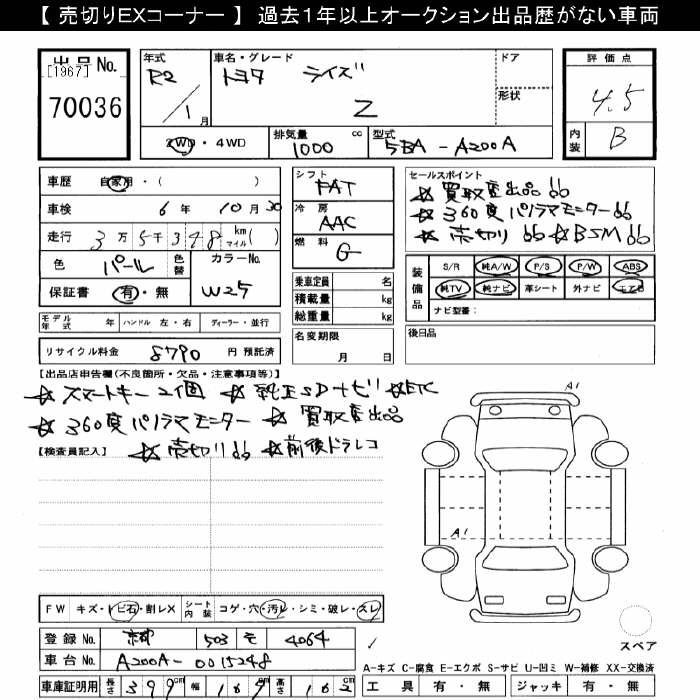 【 売切りEXコーナー 】 過去1年以上オークション出品歴がない車両
出品No.
[1967]
70036
年式
R2/1月
車名・グレード
トヨタ ライズ
Z
ドア
形状
2WD・4WD
排気量 cc
1000
型式
5BA - A200A
評価点
4.5
内装
B
車歴 自家用・( )
車検 6年 10月 30
走行 3万5千348 km マイル ( )
色 パール 色替
カラーNo.
W25
保証書 有・無
モデル年式 年 ハンドル 左・右 ディーラー・並行
リサイクル料金 8790 円 預託済
シフト
FAT
冷房
AAC
燃料
G
乗車定員 名
積載量 kg
総重量 kg
名変期限
月 日
セールスポイント
☆ 買取直出品!!
☆ 360度パノラマモニター!!
☆ 売切り!! ☆BSM!!
装備品
S/R 純A/W P/S P/W ABS
純TV 純ナビ 革シート 外ナビ エアB
ナビ型番:
後日品
【出品店申告欄(不良箇所・欠品・注意事項等)】
☆ スマートキー2個 ☆ 純正SDナビ ☆ETC
☆ 360度パノラマモニター ☆ 買取直出品
【検査員記入】
☆売切り!! ☆前後ドラレコ
A1
A1
FW キズ・トビ石・割レX シート内装 コゲ・穴・汚レ・シミ・破レ・スレ
登録No. 京都 503 モ 4064
車台No. A200A-0015248
車庫証明用 長さ 399 幅 169 高さ 162
スペア
A-キズ C-腐食 E-エクボ S-サビ U-凹ミ W-補修 XX-交換済
工具 有・無 ジャッキ 有・無